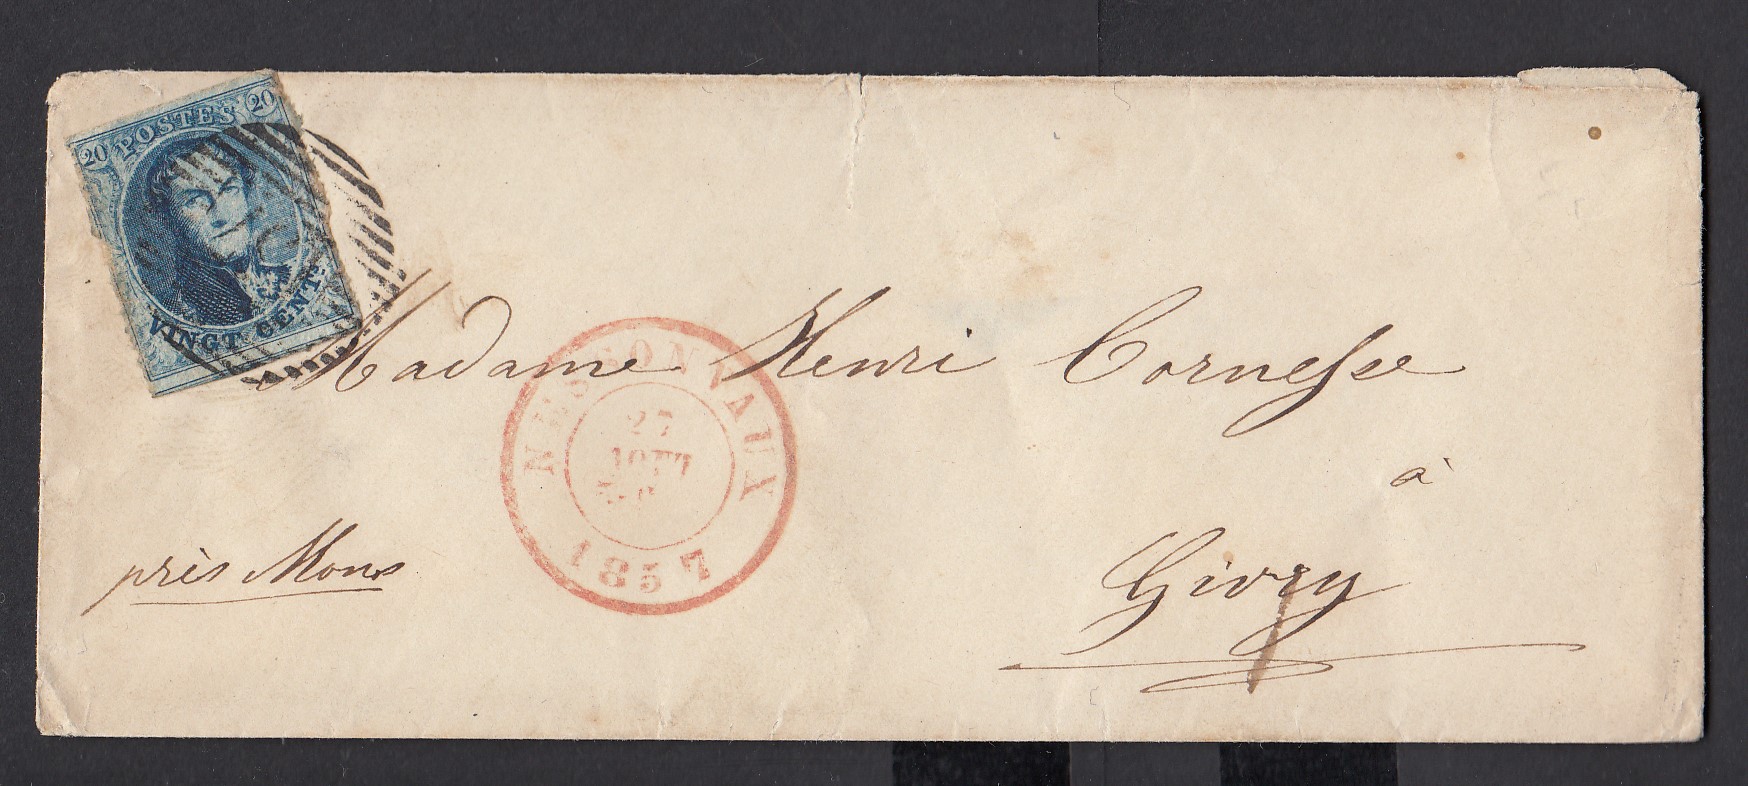 20 POSTES 20
VINGT CENTS
NESSONVAUX
27
AOUT
1857
Madame Henri Cornesse
à
Givry
près Mons